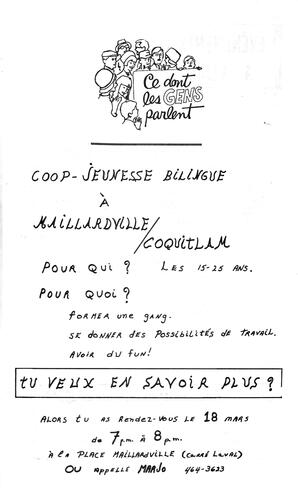 Ce dont
les GENS
parlent
COOP-JEUNESSE BILINGUE
À
MAILLARDVILLE/
COQUITLAM
POUR QUI? LES 15-25 ANS.
POUR QUOI?
FORMER UNE GANG.
SE DONNER DES POSSIBILITÉS DE TRAVAIL.
AVOIR DU FUN!
TU VEUX EN SAVOIR PLUS?
ALORS TU AS RENDEZ-VOUS LE 18 MARS
de 7 p.m. À 8 p.m.
À la PLACE MAILLARDVILLE (CARRÉ LAVAL)
OU APPELLE MARJO 464-3623